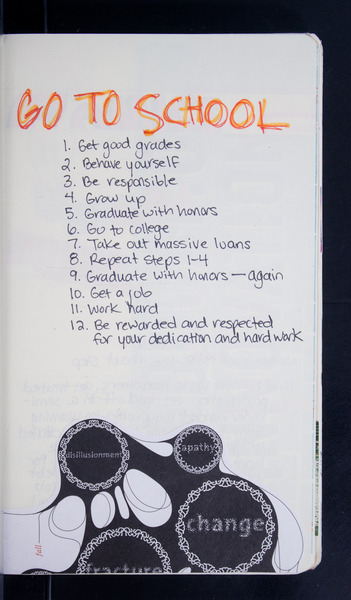 GO TO SCHOOL
1. Get good grades
2. Behave yourself
3. Be responsible
4. Grow up
5. Graduate with honors
6. Go to college
7. Take out massive loans
8. Repeat steps 1-4
9. Graduate with honors — again
10. Get a job
11. Work hard
12. Be rewarded and respected
for your dedication and hard work
disillusionment
apathy
change
fracture
fall